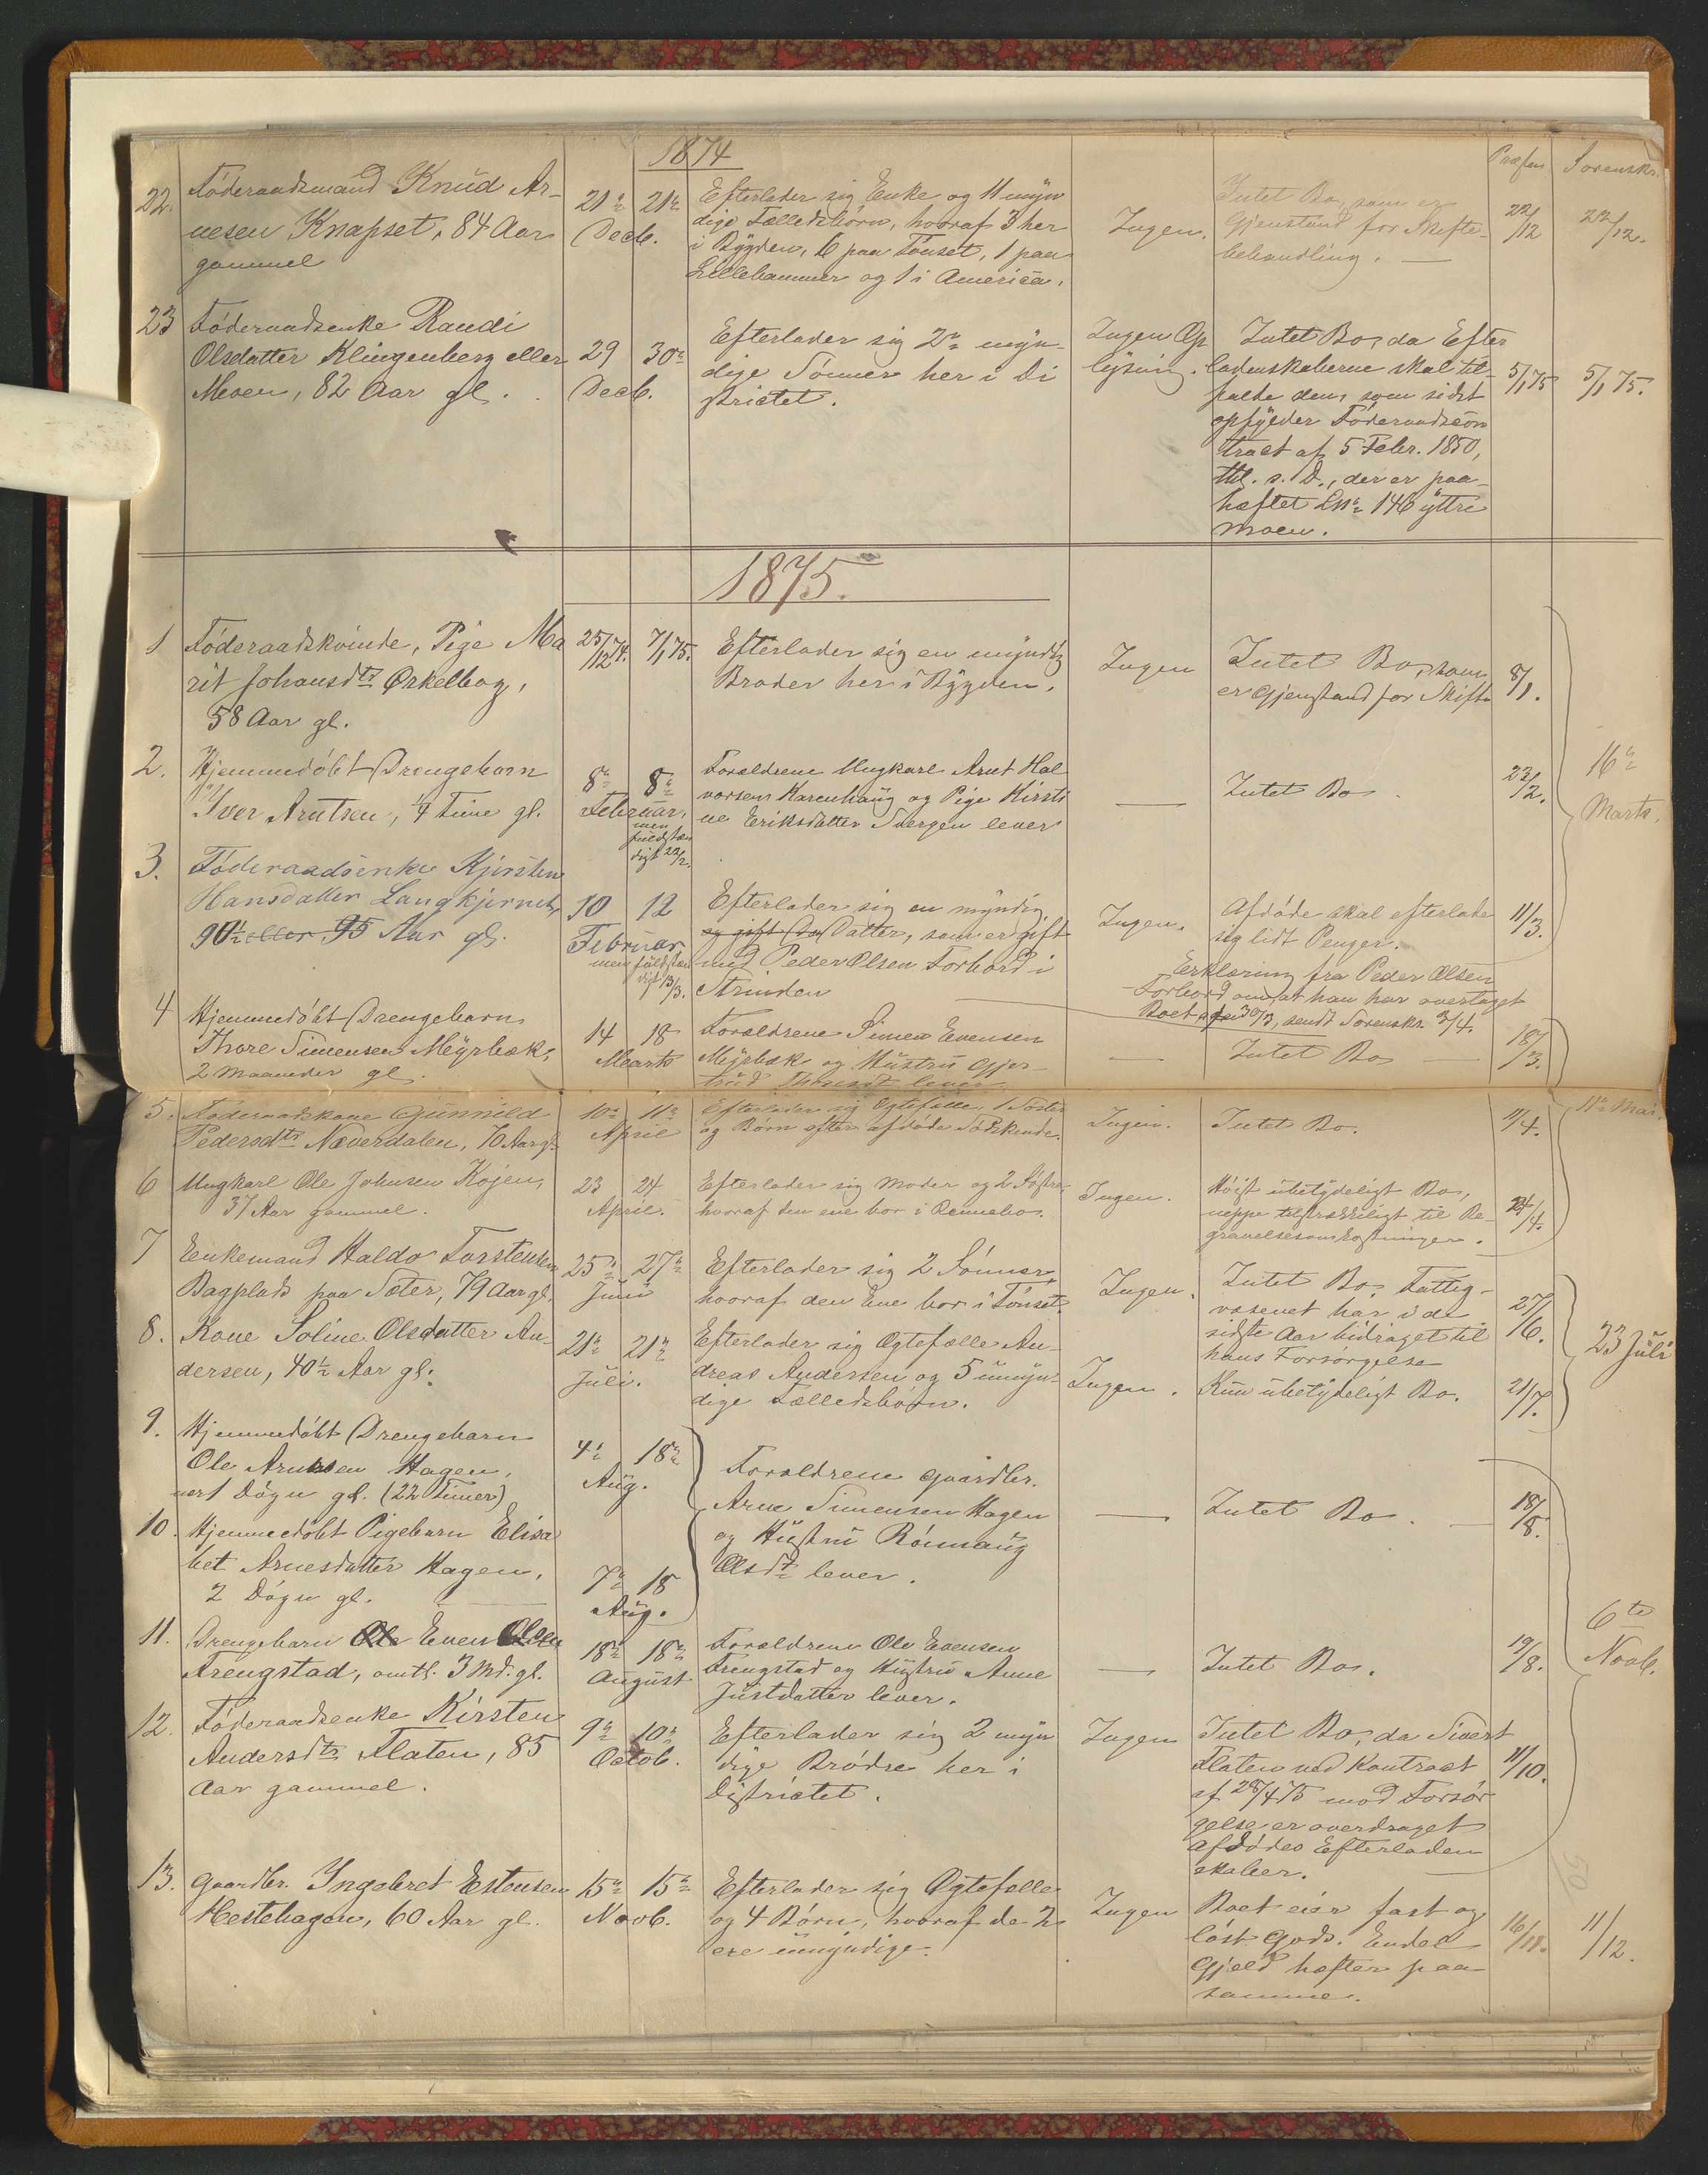 1874
Præsten
Sorenskr.
22. Föderaadsmand Knud Ar-
nesen Knapset, 84 Aar
gammel
21de 21de
Decb.
Efterlader sig Enke og 11 myn
dige Fælledsbörn, hvoraf 3 her
i Bygden, 6 paa Tönset, 1 paa
Lillehammer og 1 i America.
Ingen.
Intet Bo, som er
Gjenstand for Skifte-
behandling. —
22/12
22/12.
23 Föderaadsenke Randi
Olsdatter Klingenberg eller
Moen, 82 Aar gl.
29 30te
Decb.
Efterlader sig 2de myn-
dige Sönner her i Di
strictet.
Ingen Op
lysning.
Intet Bo, da Efter
ladenskaberne skal til-
falde den, som sidst
opfylder Föderaadscon
tract af 5 Febr. 1850,
thl. s. D., der er paa-
hæftet Lnr 146 yttre
Moen.
5/1 75
5/1 75.
1875.
1 Föderaadskvinde, Pige Ma
rit Johansdtr Orkelbog,
58 Aar gl.
25/12 74. 7/1 75.
Efterlader sig en myndig
Broder her i Bygden.
Ingen
Intet Bo, som
er Gjenstand for Skifte
8/1.
2. Hjemmedöbt Drengebarn
Iver Arntsen, 1/4 Time gl.
8de 8de
Februar,
men
fuldstæn
digt 22/2.
Forældrene Ungkarl Arnt Hal
vorsen Karenhaug og Pige Kirsti
ne Eriksdatter Svergen lever
—
Intet Bo.
23/2.
16de
Marts.
3. Föderaadsenke Kjersten
Hansdatter Langkjernet,
90½ eller 95 Aar gl.
10 12
Februar
men fuldstæn
digt 13/3.
Efterlader sig en myndig
og gift Da Datter, som er gift
med Peder Olsen Forbord i
Strinden
Ingen.
Afdöde skal efterlade
sig lidt Penger.
Erklæring fra Peder Olsen
Forbord om at han har overtaget
Boet af 30/3, sendt Sorenskr. 3/4.
11/3.
4 Hjemmedöbt Drengebarn
Thore Simensen Myrbæk,
2 Maaneder gl.
14 18
Marts
Forældrene Simen Evensen
Myrbæk og Hustru Gjer-
trud Thoresdt lever
—
Intet Bo
18/3.
5. Föderaadskone Gunnild
Pedersdtr Næverdalen, 70 Aar gl.
10de 11te
April
Efterlader sig Ægtefælle, 1 Söster
og Börn efter afdöde Södskende.
Ingen.
Intet Bo.
11/4.
11te Mai.
6 Ungkarl Ole Johnsen Kojen,
37 Aar gammel.
23 24
April.
Efterlader sig Moder og 2 Söstre,
hvoraf den ene bor i Rennebo.
Ingen.
Höist ubetydeligt Bo,
neppe tilstrækkeligt til Be-
gravelsesomkostninger.
24/4.
7 Enkemand Haldo Torstensen
Bagplads paa Sæter, 79 Aar gl.
25de 27de
Juni
Efterlader sig 2 Sönner,
hvoraf den Ene bor i Tönset.
Ingen.
Intet Bo. Fattig-
væsenet har i de
sidste Aar bidraget til
hans Forsörgelse
27/6.
8. Kone Soline Olsdatter An-
dersen, 40½ Aar gl.
21de 21de
Juli.
Efterlader sig Ægtefælle An-
dreas Andersen og 5 umyn-
dige Fælledsbörn.
Ingen.
Kun ubetydeligt Bo.
21/7.
23 Juli
9. Hjemmedöbt Drengebarn
Ole Arnesen Hagen,
næst Dögn gl. (22 Timer)
4de 18de
Aug.
Forældrene Gaardbr.
Arne Simensen Hagen
og Hustru Rönnaug
Olsdt lever.
—
Intet Bo. —
18/8.
10. Hjemmedöbt Pigebarn Elisa
bet Arnesdatter Hagen,
2 Dögn gl.
7de 18
Aug.
11. Drengebarn Ole Even Olsen
Trengstad, omtl. 3 Md. gl.
18de 18de
August
Forældrene Ole Evensen
Trengstad og Hustru Anne
Justdatter lever.
—
Intet Bo.
19/8.
6te
Novb.
12. Föderaadsenke Kirsten
Andersdtr Flaten, 85
Aar gammel.
9de 10de
Octob.
Efterlader sig 2 myn
dige Brödre her i
Districtet.
Ingen
Intet Bo, da Sivert
Flaten ved Kontract
af 28/4 75 mod Forsör
gelse er overdraget
Afdödes Efterladen
skaber.
11/10.
13. Gaardbr. Ingebret Estensen
Hestehagen, 60 Aar gl.
15de 15de
Novb.
Efterlader sig Ægtefælle
og 4 Börn, hvoraf de 2
ere umyndige.
Ingen
Boet eier fast og
löst Gods. Endel
Gjeld hæfter paa
samme.
16/11.
11/12.